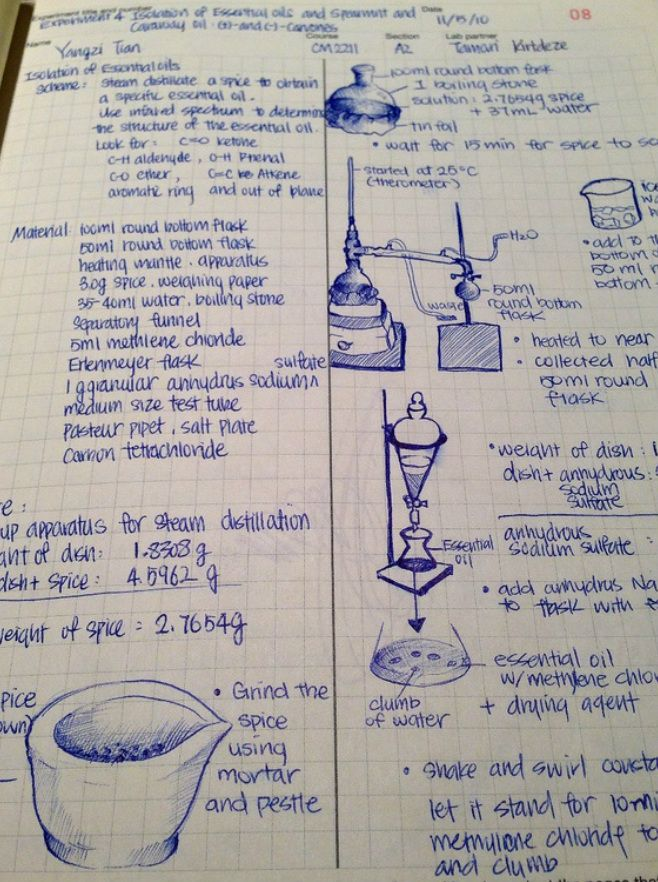 Experiment title and number
Experiment 4 Isolation of Essential oils and Spearmint and
Caraway oil: (+)-and (-)-Carvones
Date
11/15/10
08
Name
Yangzi Tian
Course
CM2211
Section
A2
Lab partner
Tamari Kirtdeze
Isolation of Essential oils
scheme: steam distillate a spice to obtain
a specific essential oil.
Use infared spectrum to determine
the structure of the essential oil.
Look for: C=O ketone
C-H aldehyde, O-H Phenol
C-O ether, C=C Alkene
aromatic ring and out of plane
Material: 100ml round bottom flask
50ml round bottom flask
heating mantle. apparatus
3.0g spice. weighing paper
35-40ml water. boiling stone
separatory funnel
5ml methlene chloride
Erlenmeyer flask
sulfate
1g granular anhydrus sodium^
medium size test tube
Pasteur pipet, salt plate
Carbon tetrachloride
up apparatus for steam distillation
dish: 1.8308 g
dish + spice: 4.5962 g
weight of spice = 2.7654g
• Grind the
spice
using
mortar
and pestle
100ml round bottom flask
1 boiling stone
solution: 2.7654g spice
+ 37mL water
tin foil
• wait for 15 min for spice to
started at 25°C
(therometer)
H2O
waste
50ml
round bottom
flask
• add to
bottom
50 ml
bottom
• heated to near
• collected half
50ml round
flask
• weight of dish:
dish+ anhydrous:
sodium
sulfate
anhydrous
sodium sulfate:
Essential
oil
• add anhydrus Na
to flask with
essential oil
w/methylene
+ drying agent
clumb
of water
• shake and swirl
let it stand for 10
methylene chloride to
and clumb